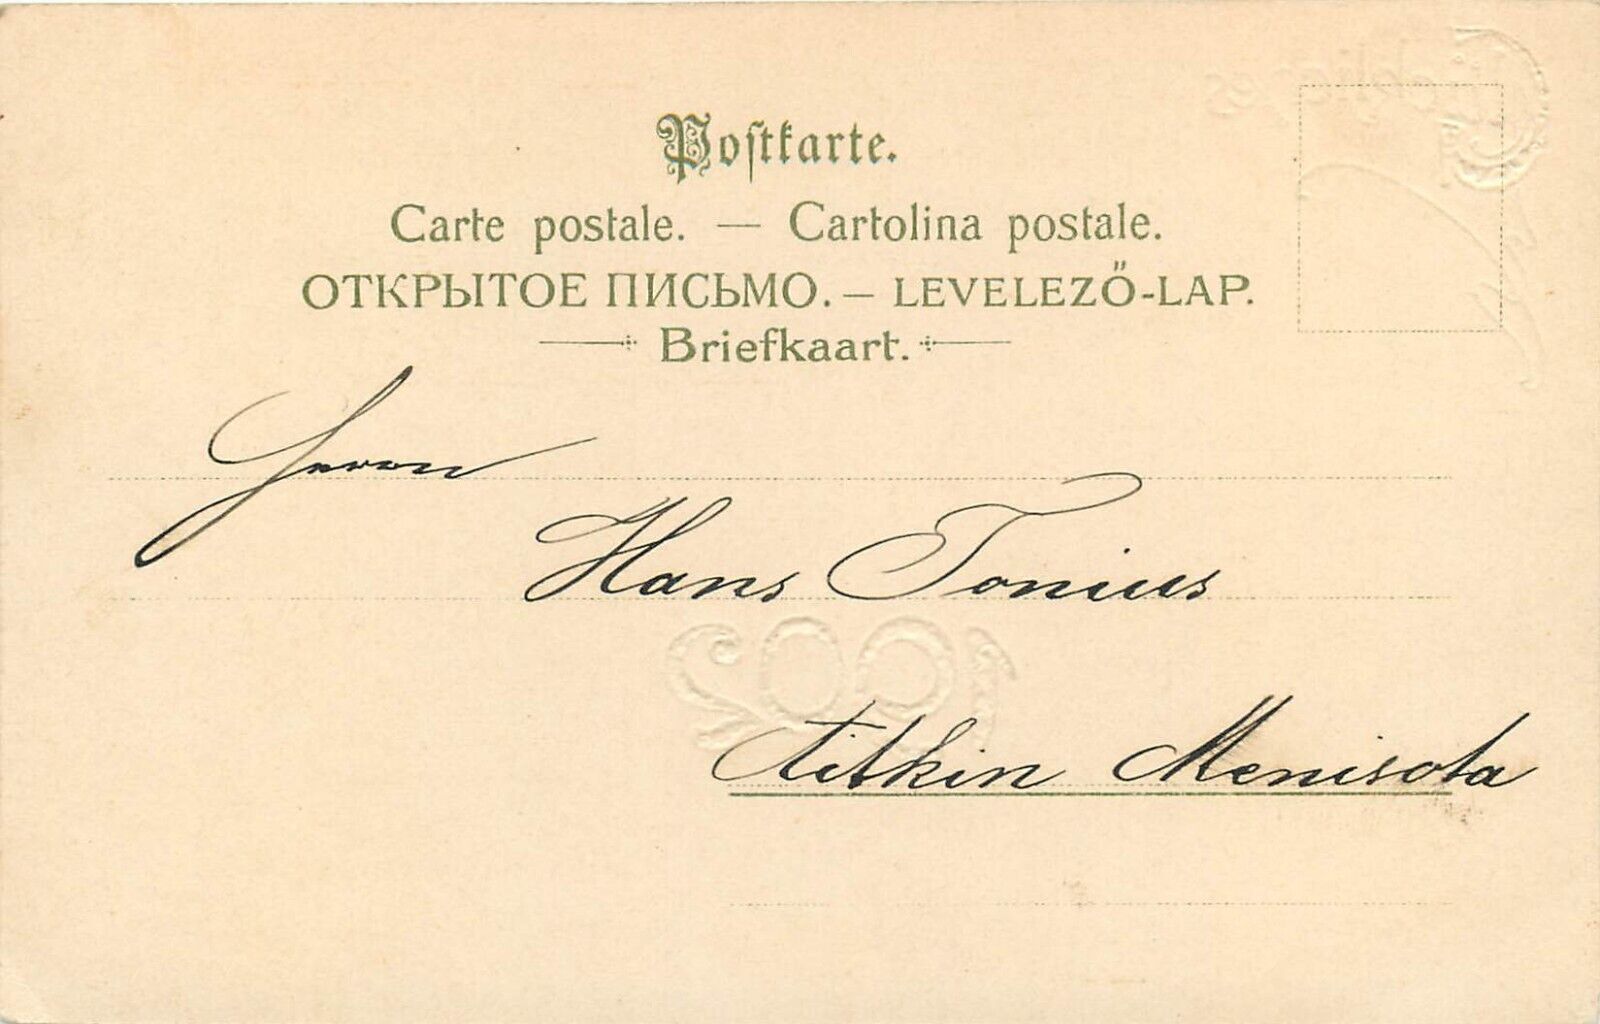 Postkarte.
Carte postale. — Cartolina postale.
ОТКРЫТОЕ ПИСЬМО. — LEVELEZŐ-LAP.
Briefkaart.
Herrn
Hans Tonius
Aitkin Menisota